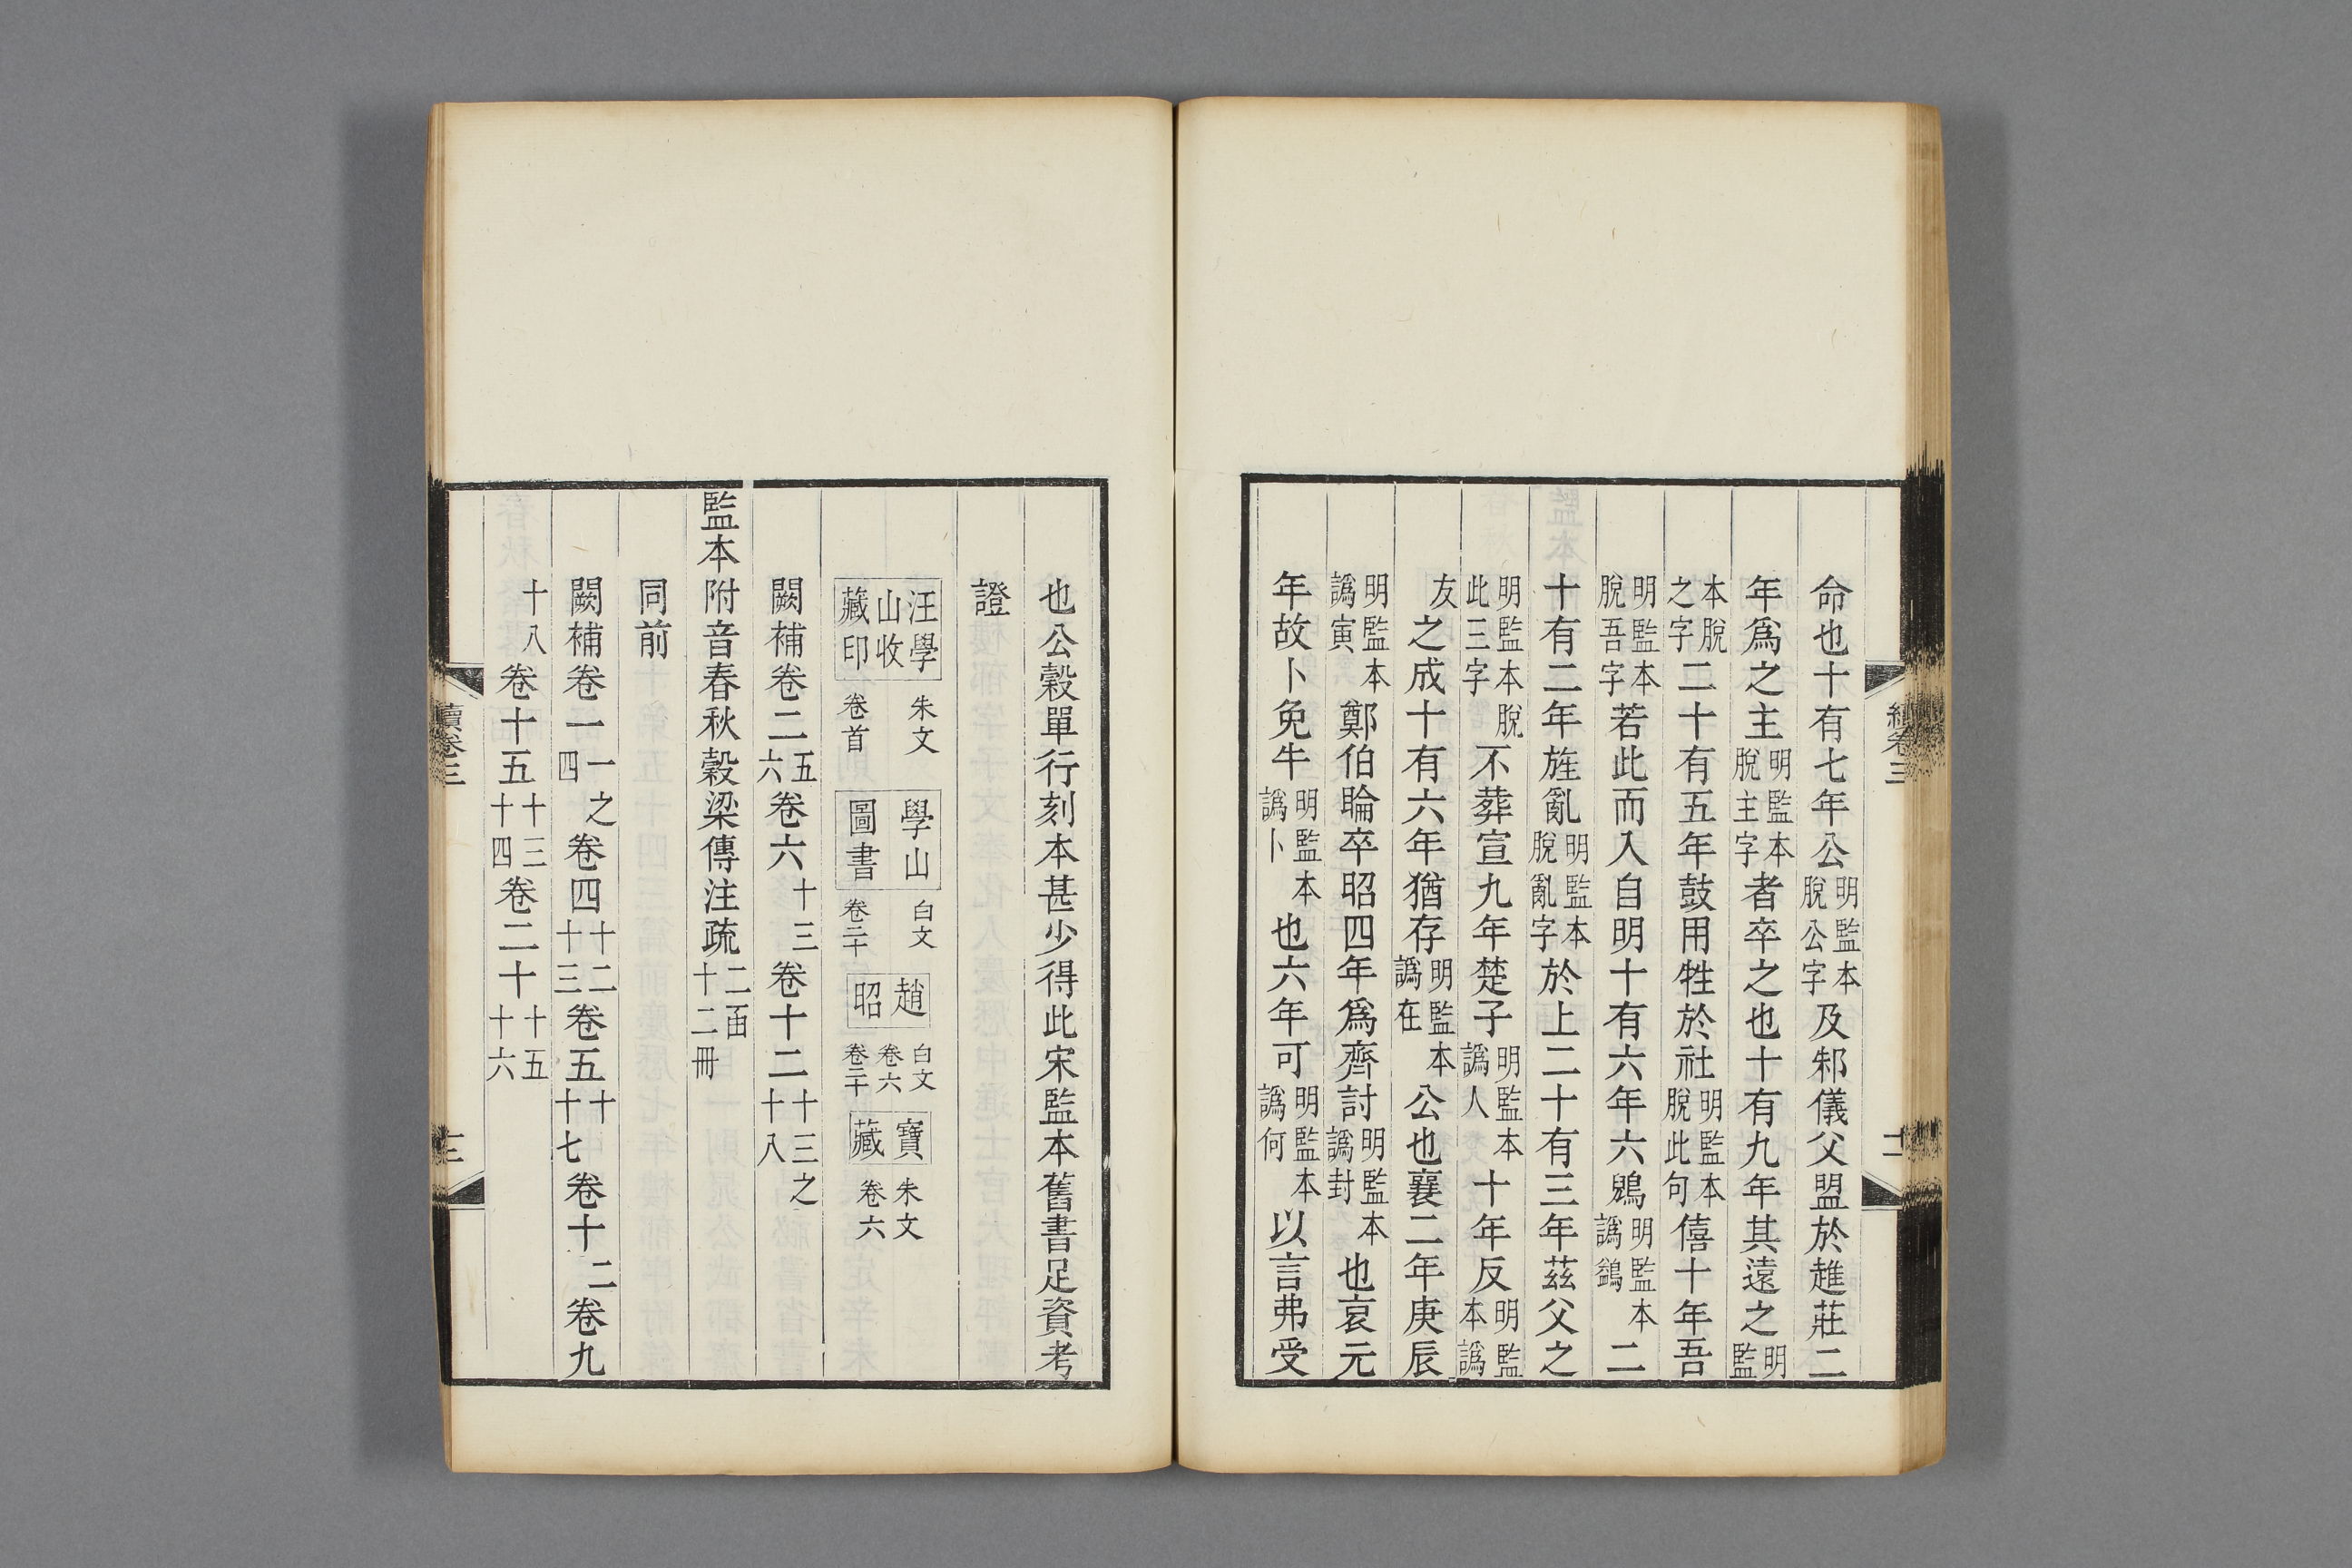 命也十有七年公明監本脫公字及邾儀父盟於趡莊二
年爲之主明監本脫主字者卒之也十有九年其遠之明監
本脫之字二十有五年鼓用牲於社明監本脫此句僖十年吾
明監本脫吾字若此而入自明十有六年六鶂明監本譌鷁二
十有二年旌亂明監本脫亂字於上二十有三年茲父之
明監本脫此三字不葬宣九年楚子明監本譌人十年反明監本譌
友之成十有六年猶存明監本譌在公也襄二年庚辰
明監本譌寅鄭伯睔卒昭四年爲齊討明監本譌封也哀元
年故卜免牛明監本譌卜也六年可明監本譌何以言弗受
續卷三
二
也公穀單行刻本甚少得此宋監本舊書足資考
證
汪學山收藏印 朱文卷首 學山圖書 白文卷二十 趙昭 白文卷六卷二十 寶藏 朱文卷六
闕補卷二五六卷六十三卷十二十三之十八
監本附音春秋穀梁傳注疏二函十二冊
同前
闕補卷一一之四卷四十二十三卷五十十七卷十二二卷九
十八卷十五十三十四卷二十十五十六
續卷三
三